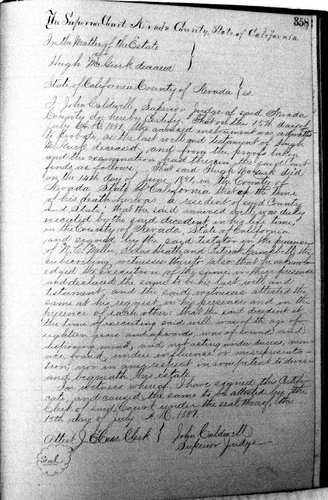 358
In Superior Court Nevada County, State of California
In the Matter of the Estate
of
Hugh McGurk deceased
State of California County of Nevada } ss
I John Caldwell, Superior Judge of said Nevada
County do hereby certify: That on the 15th day of
July A.D. 1881, the annexed instrument was admitted
to probate as the last will and testament of Hugh
McGurk deceased, and from the proofs taken
and the examination had therein, the said Court
finds as follows: That said Hugh McGurk died
on the 14th day of June 1881, in the County of
Nevada State of California that at the time
of his death he was a resident of said County
and State; that the said annexed will was duly
executed by the said decedent in his life time,
in the County of Nevada, State of California
and signed by the said testator in the presence
of W. C. and Patrick Campbell the
subscribing witnesses thereto; also that he acknowl
edged the execution of the same in their presence
and declared the same to be his last will and
testament; and the said witnesses attested the
same at his request, in his presence and in the
presence of each other: that the said decedent at
the time of executing said will was of the age of
eighteen years and upwards, was of sound and
disposing mind, and not acting under duress, men
ace, fraud, undue influence or misrepresenta
tion, nor in any respect incompetent to devise
and bequeath his estate.
In witness whereof, I have signed this Certifi
cate, and caused the same to be attested by the
Clerk of said Court under the seal thereof, this
15th day of July A.D. 1881.
Attest J. E. Carr Clerk } John Caldwell
Seal Superior Judge